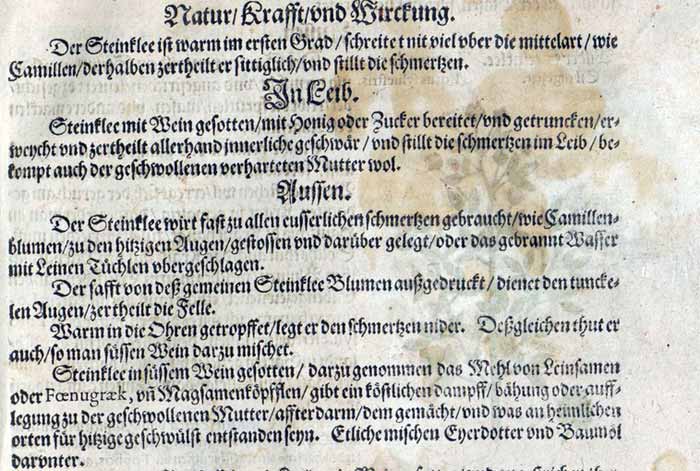 Natur/Krafft/vnd Wirckung.
Der Steinklee ist warm im ersten Grad/schreitet nit viel vber die mittelart/wie
Camillen/derhalben zertheilt er sittiglich/vnd stillt die schmertzen.
In Leib.
Steinklee mit Wein gesotten/mit Honig oder Zucker bereitet/vnd getruncken/er-
weycht vnd zertheilt allerhand innerliche geschwär/vnd stillt die schmertzen im Leib/be-
kompt auch der geschwollenen verharteten Mutter wol.
Aussen.
Der Steinklee wirt fast zu allen eusserlichen schmertzen gebraucht/wie Camillen-
blumen/zu den hitzigen Augen/gestossen vnd darüber gelegt/oder das gebrannt Wasser
mit Leinen Tüchlen vbergeschlagen.
Der safft von deß gemeinen Steinklee Blumen außgedruckt/dienet den tuncke-
len Augen/zertheilt die Felle.
Warm in die Ohren getropffet/legt er den schmertzen nider. Deßgleichen thut er
auch/so man süssen Wein darzu mischet.
Steinklee in süssem Wein gesotten/darzu genommen das Mehl von Leinsamen
oder Fœnugræk, vñ Magsamenköpfflen/gibt ein köstlichen dampff/bähung oder auff-
legung zu der geschwollenen Mutter/affterdarm/dem gemächt/vnd was an heimlichen
orten für hitzige geschwülst entstanden seyn. Etliche mischen Eyerdotter vnd Baumöl
darunter.